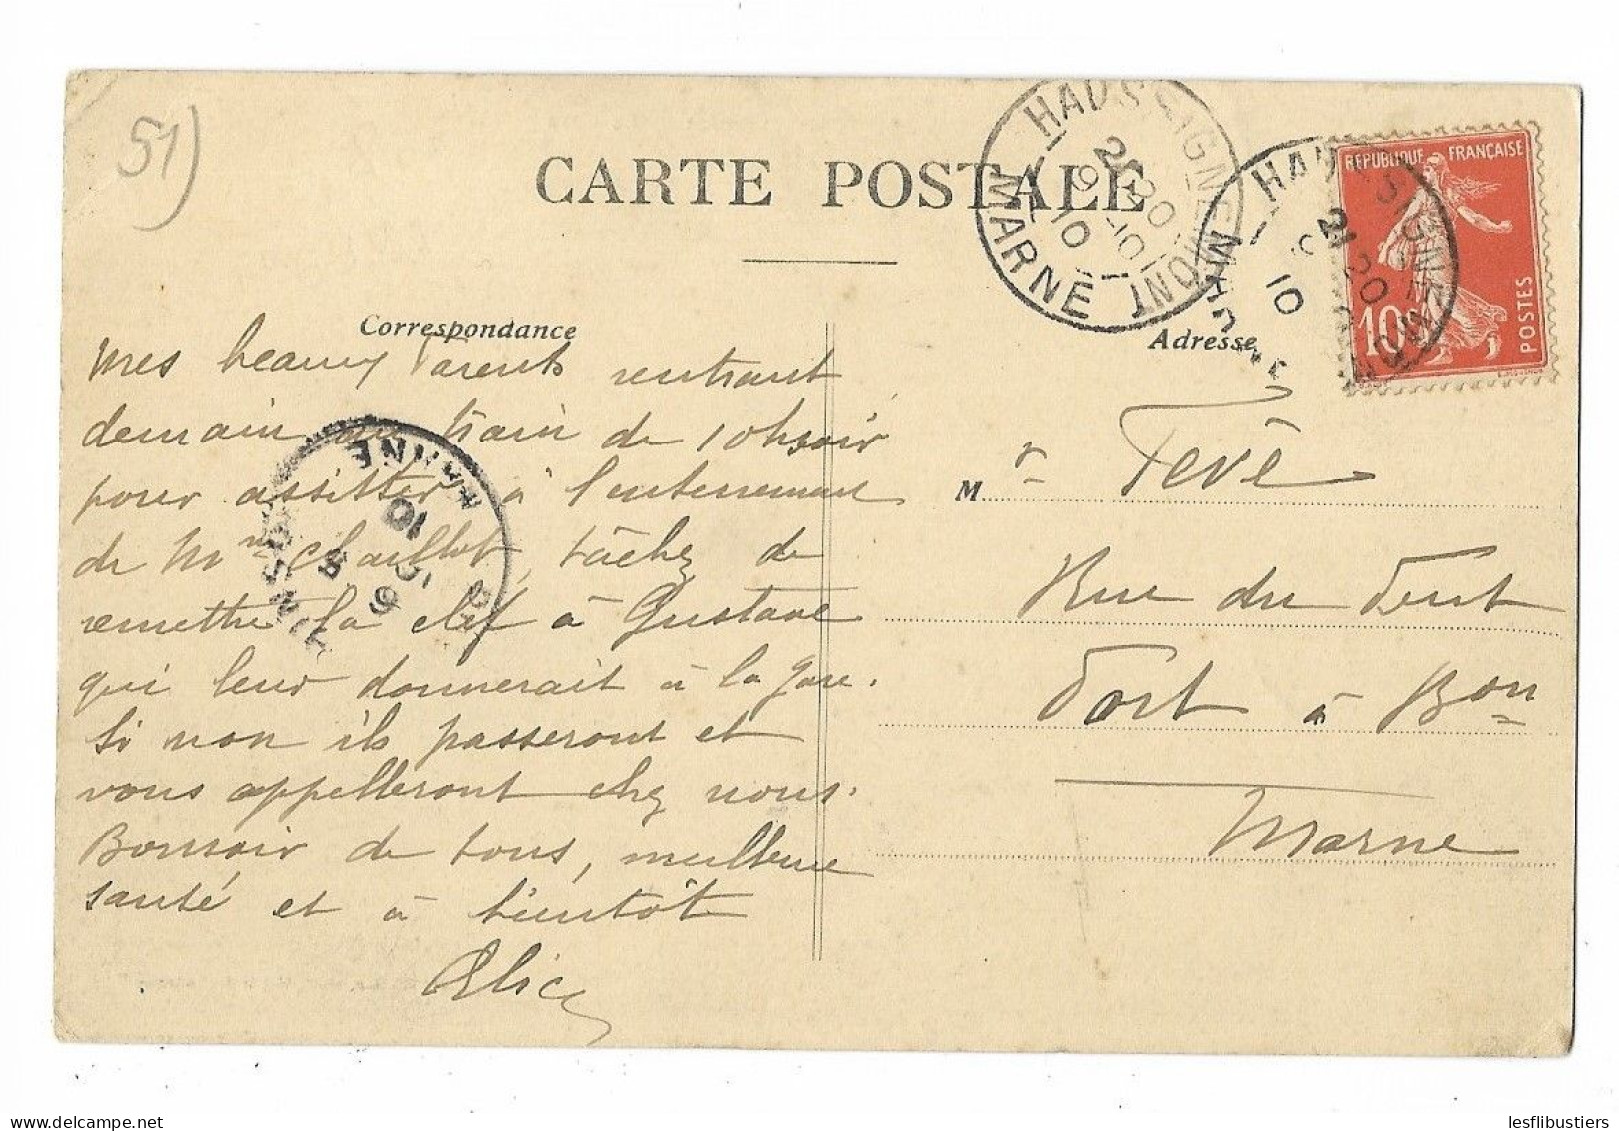 51)
CARTE POSTALE
HAUSSIGNEMONT
MARNE
20
9 - 10
10
HAUSSIGNEMONT
21 20
10
REPUBLIQUE FRANÇAISE
10
POSTES
Correspondance
Adresse
mes beaux Parents rentrant
demain au train de 10h soir
pour assister à l'enterrement
de Mme Chaillot, tâchez de
remettre la clef à Gustave
qui leur donnerait à la gare.
Si non ils passeront et
vous appelleront chez nous.
Bonsoir de tous, meilleure
santé et à bientôt
Alice
MARNE
10
Mr Fevé
Rue du Pont
Port à Bon
Marne
lesflibustiers